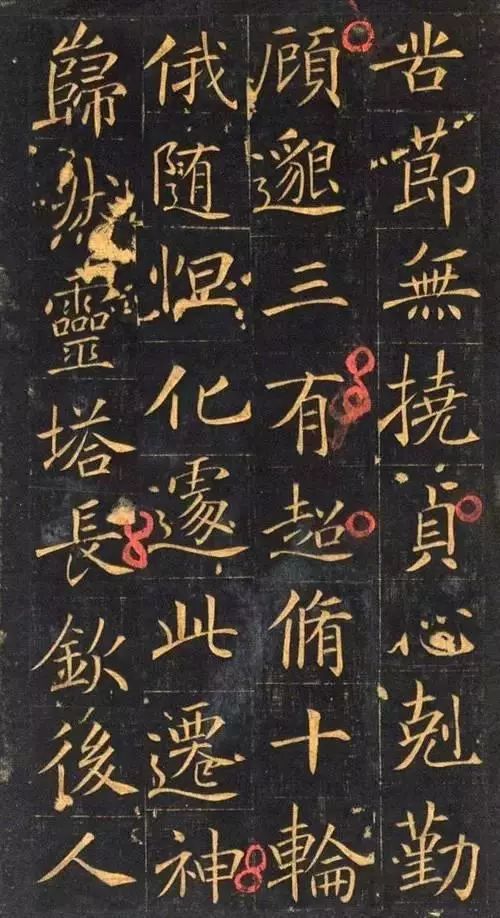 苦莭無撓貞心剋勤
顧邈三有超脩十輪
俄随怛化遽此遷神
巋然靈塔長欽後人